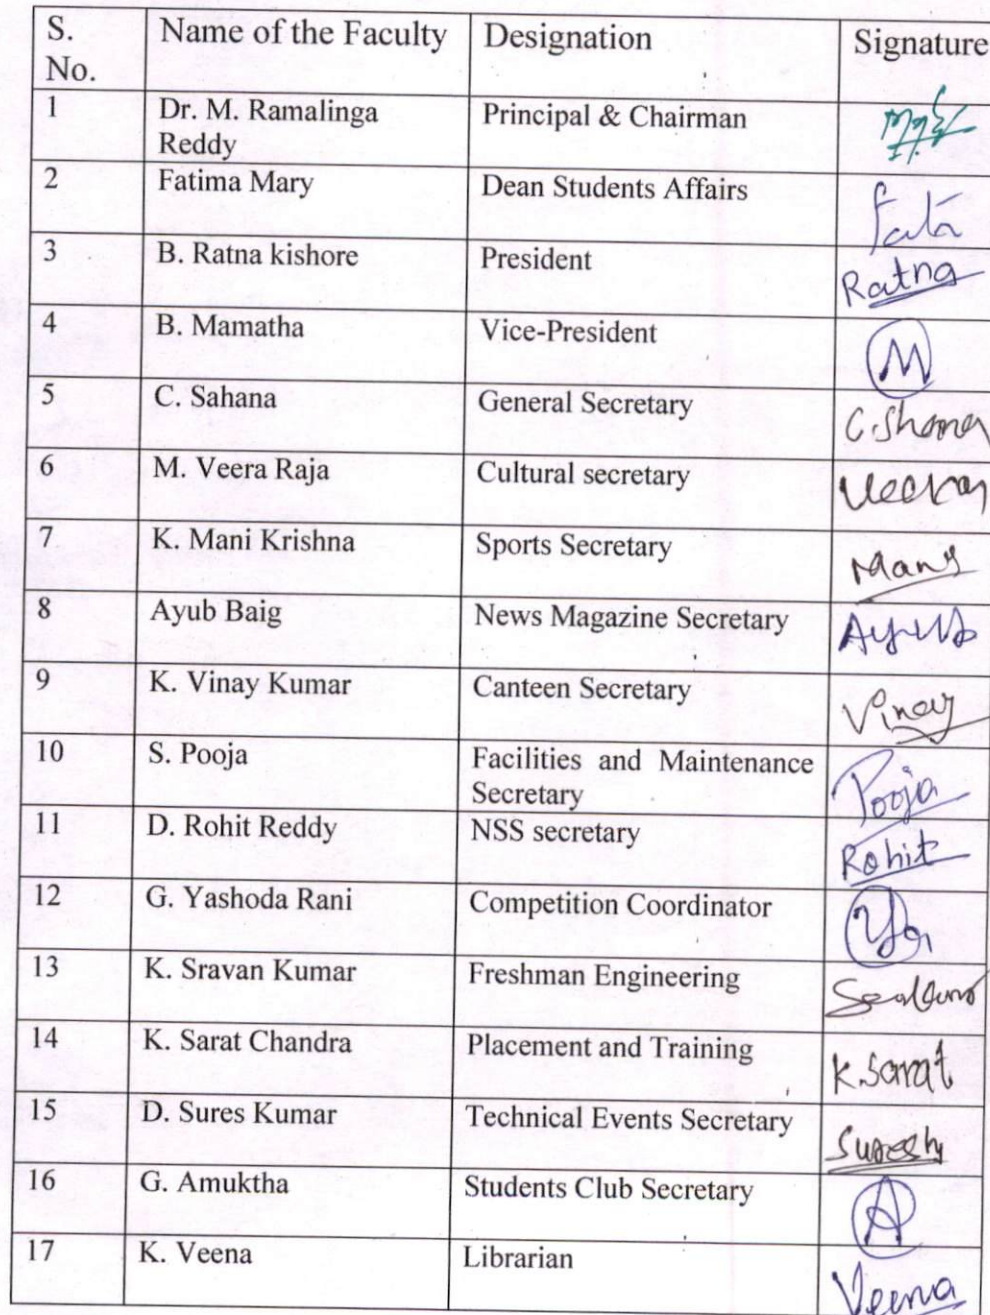 S. No. Name of the Faculty Designation Signature
1 Dr. M. Ramalinga Reddy Principal & Chairman
2 Fatima Mary Dean Students Affairs
3 B. Ratna kishore President Ratna
4 B. Mamatha Vice-President M
5 C. Sahana General Secretary
6 M. Veera Raja Cultural secretary
7 K. Mani Krishna Sports Secretary Mani
8 Ayub Baig News Magazine Secretary Ayub
9 K. Vinay Kumar Canteen Secretary Vinay
10 S. Pooja Facilities and Maintenance Secretary Pooja
11 D. Rohit Reddy NSS secretary Rohit
12 G. Yashoda Rani Competition Coordinator
13 K. Sravan Kumar Freshman Engineering
14 K. Sarat Chandra Placement and Training K.Sarat
15 D. Sures Kumar Technical Events Secretary Suresh
16 G. Amuktha Students Club Secretary A
17 K. Veena Librarian Veena